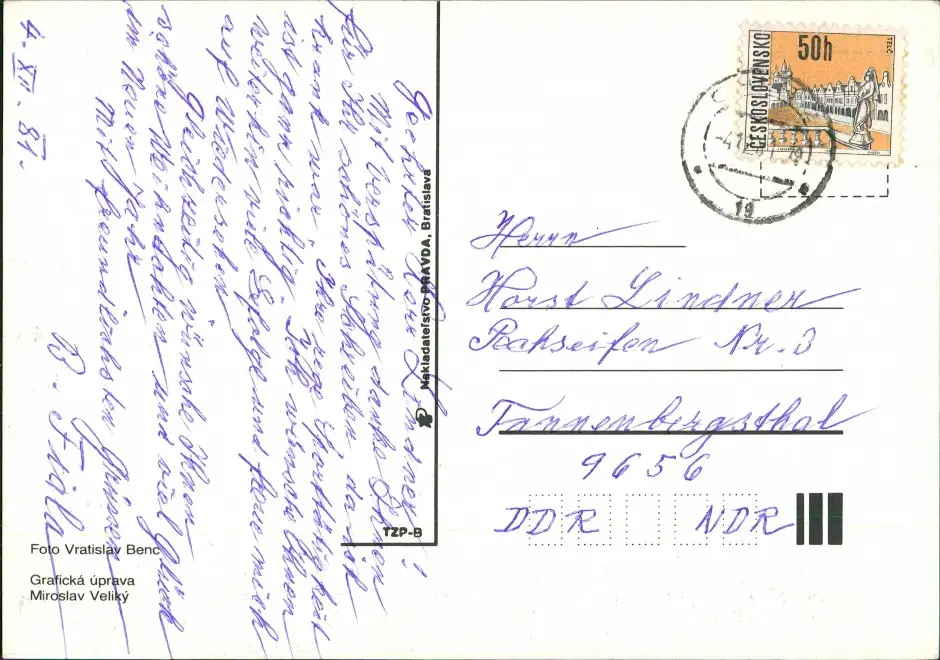 Geehrter Herr Lindner!
Mit Verspätung danke Ihnen
für Ihr schönes Schreiben, da ich
krank war. Ihre rege Sammlertätigkeit
ist ganz richtig. Ich wünsche Ihnen
weiterhin viel Erfolge und freue mich
auf Wiedersehen.
Gleichzeitig wünsche Ihnen
schöne Weihnachten und viel Glück
im Neuen Jahr
Mit freundlichsten Grüssen
4. XII. 81.
Foto Vratislav Benc
Grafická úprava
Miroslav Veliký
Nakladateľstvo PRAVDA, Bratislava
TZP-B
ČESKOSLOVENSKO
50h
TELČ
19
Herrn
Horst Lindner
Nr. 3
Tannenbergsthal
9656
DDR NDR